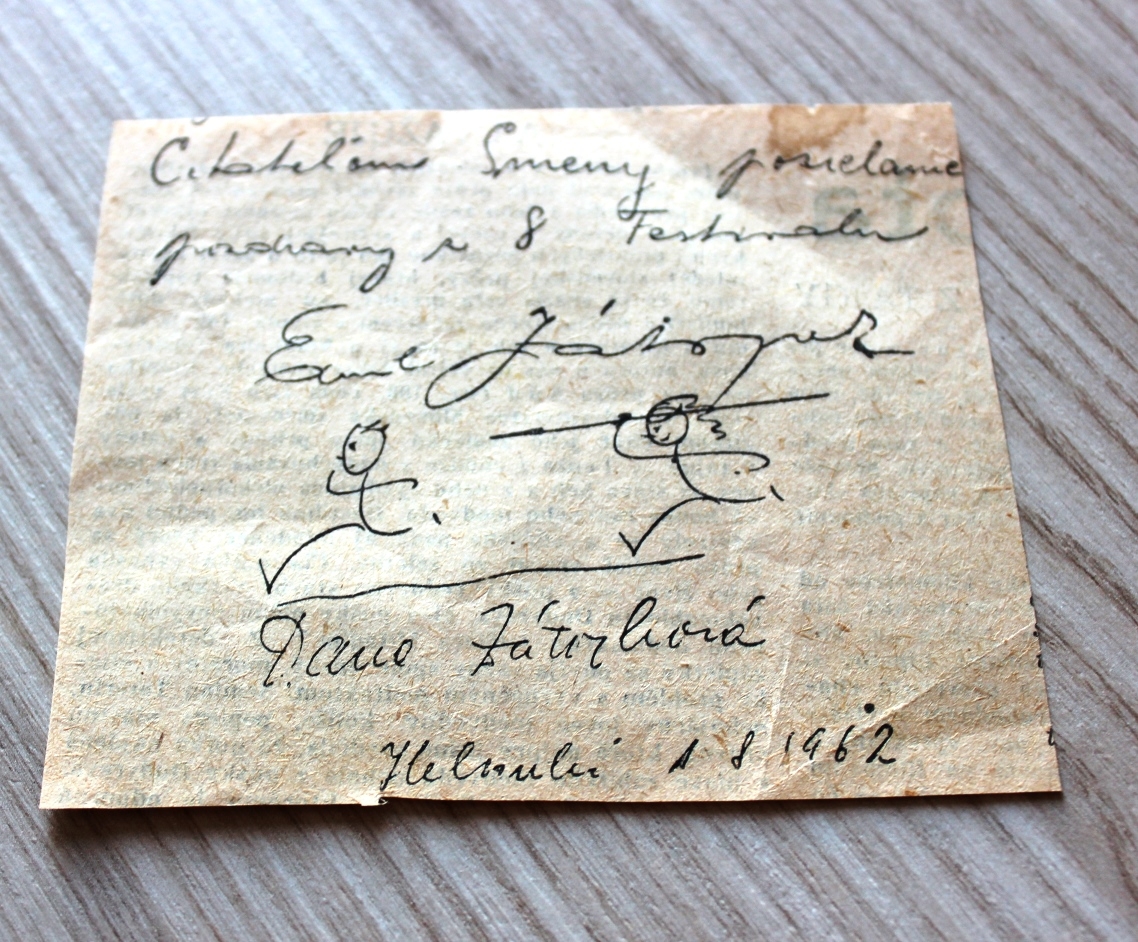 Čitateľom Smeny posielame
pozdravy z 8 Festivalu
Emil Zátopek
Dana Zátopková
Helsinki 1 8 1962